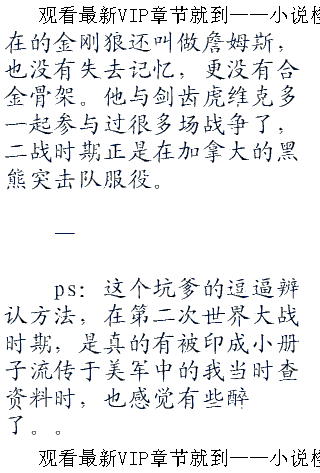 观看最新VIP章节就到——小说检
在的金刚狼还叫做詹姆斯，
也没有失去记忆，更没有合
金骨架。他与剑齿虎维克多
一起参与过很多场战争了，
二战时期正是在加拿大的黑
熊突击队服役。
—
ps：这个坑爹的逗逼辨
认方法，在第二次世界大战
时期，是真的有被印成小册
子流传于美军中的我当时查
资料时，也感觉有些醉
了。。
观看最新VIP章节就到——小说检